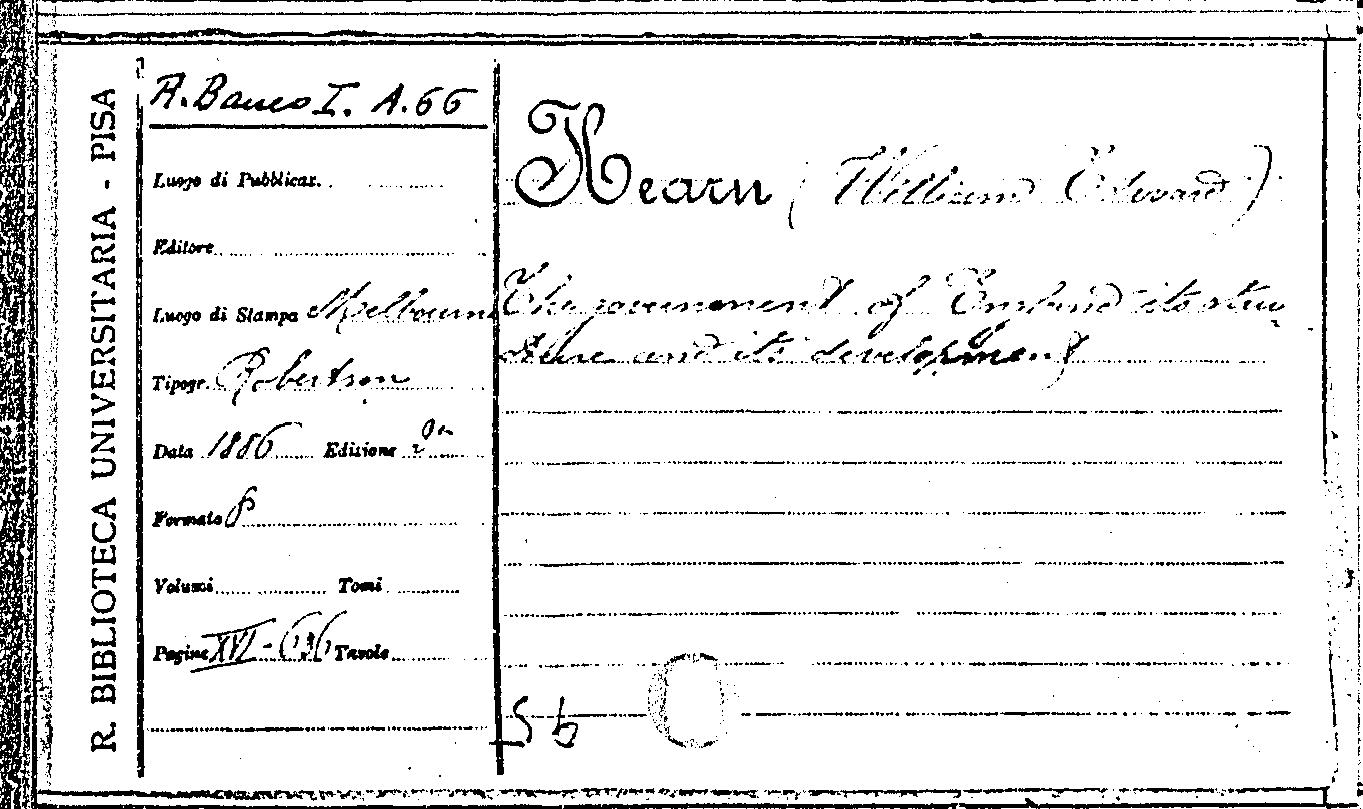 R. BIBLIOTECA UNIVERSITARIA - PISA
R. Banco I. A. 66
Luogo di Pubblicaz.
Editore
Luogo di Stampa Melbourne
Tipogr. Robertson
Data 1886 Edizione 2a
Formato 8
Volumi Tomi
Pagine XVI - 636 Tavole
Hearn (William Edward)
The government of England its struc
ture and its development